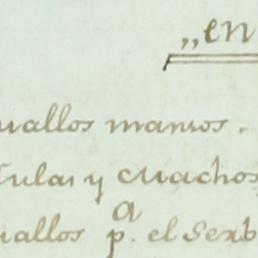 „en
uallos mansos.
tulas y Machos
uallos p.ª el Serb